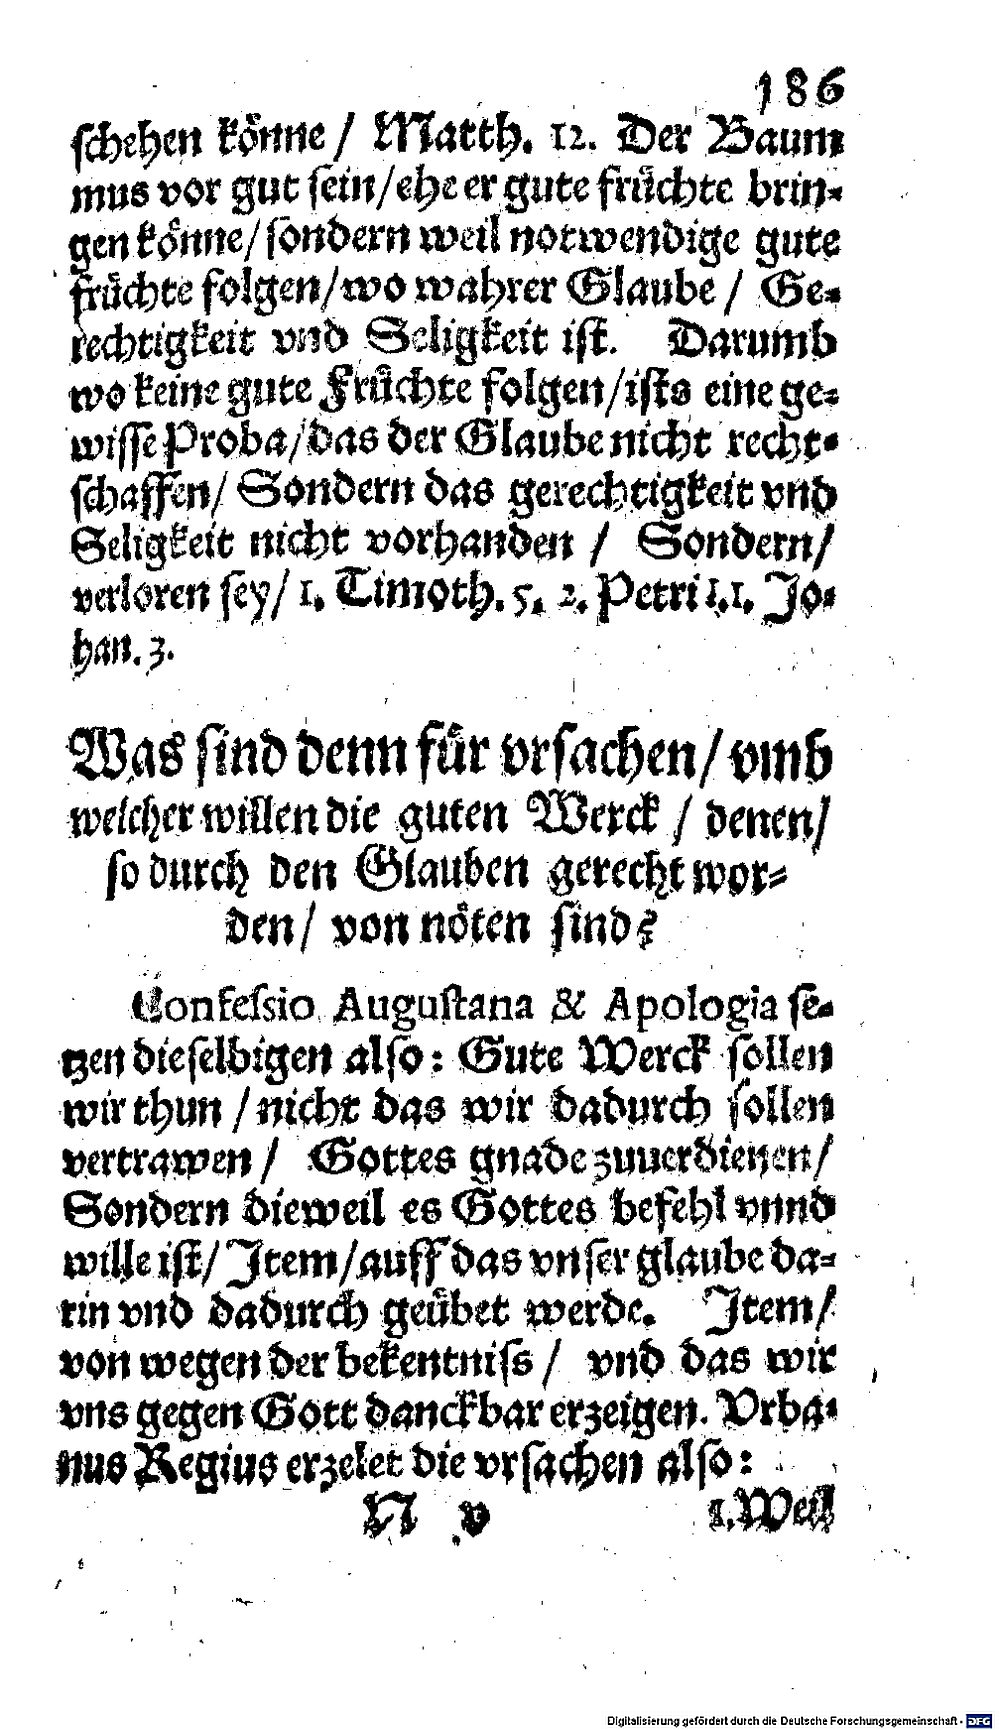 186
schehen könne / Matth. 12. Der Baum
mus vor gut sein/ehe er gute früchte brin-
gen könne/sondern weil notwendige gute
früchte folgen/wo wahrer Glaube / Ge-
rechtigkeit vnd Seligkeit ist. Darumb
wo keine gute Früchte folgen/ists eine ge-
wisse Proba/das der Glaube nicht recht-
schaffen/ Sondern das gerechtigkeit vnd
Seligkeit nicht vorhanden / Sondern/
verloren sey/ 1. Timoth. 5. 2. Petri 1.1. Jo-
han. 3.
Was sind denn für vrsachen/ vmb
welcher willen die guten Werck / denen/
so durch den Glauben gerecht wor-
den/ von nöten sind?
Confessio Augustana & Apologia se-
tzen dieselbigen also: Gute Werck sollen
wir thun / nicht das wir dadurch sollen
vertrawen / Gottes gnade zuuerdienen/
Sondern dieweil es Gottes befehl vnnd
wille ist/ Item/auff das vnser glaube da-
rin vnd dadurch geübet werde. Item/
von wegen der bekentniss / vnd das wir
vns gegen Gott danckbar erzeigen. Vrba-
nus Regius erzelet die vrsachen also:
N v 1. Weil
Digitalisierung gefördert durch die Deutsche Forschungsgemeinschaft - DFG